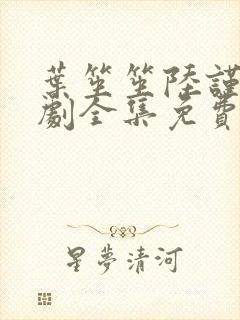 葉笙笙陸謹
劇全集免費
星夢清河